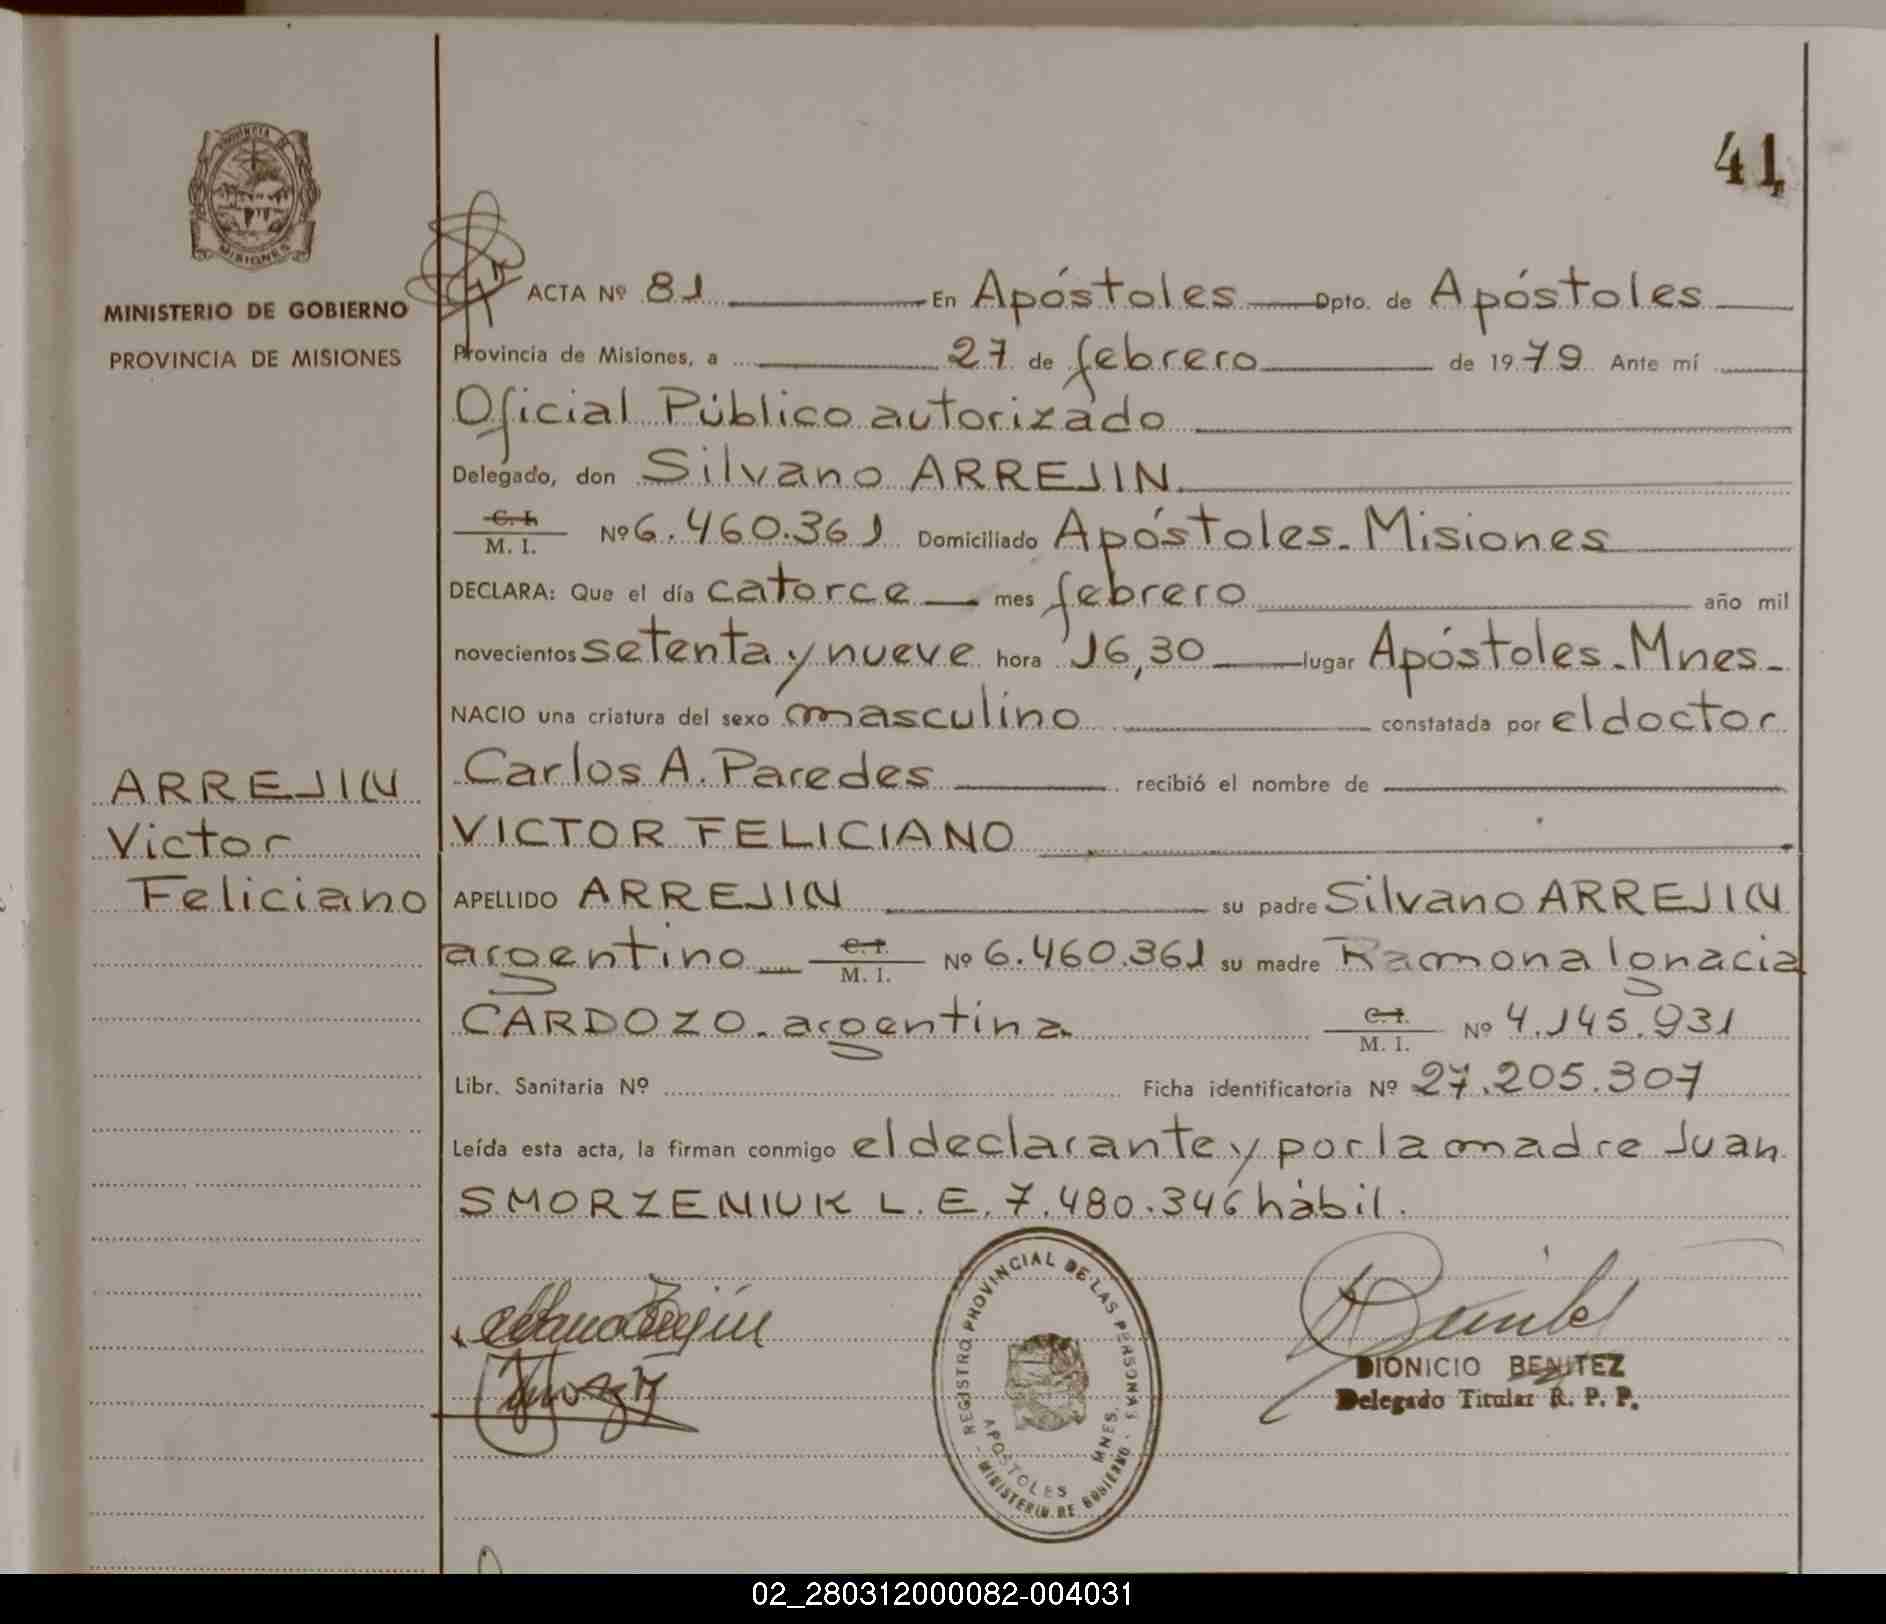 41
PROVINCIA DE
MISIONES
MINISTERIO DE GOBIERNO
PROVINCIA DE MISIONES
ACTA Nº 81 En Apóstoles Dpto. de Apóstoles
Provincia de Misiones, a 27 de febrero de 1979 Ante mí
Oficial Público autorizado
Delegado, don Silvano ARREJIN
C. I.
M. I. Nº 6.460.361 Domiciliado Apóstoles - Misiones
DECLARA: Que el día catorce mes febrero año mil
novecientos setenta y nueve hora 16,30 lugar Apóstoles - Mnes -
NACIO una criatura del sexo masculino constatada por el doctor
Carlos A. Paredes recibió el nombre de
VICTOR FELICIANO
ARREJIN
Victor
Feliciano
APELLIDO ARREJIN su padre Silvano ARREJIN
argentino C. I.
M. I. Nº 6.460.361 su madre Ramona Ignacia
CARDOZO - argentina C. I.
M. I. Nº 4.145.931
Libr. Sanitaria Nº Ficha identificatoria Nº 27.205.307
Leída esta acta, la firman conmigo el declarante y por la madre Juan
SMORZENIUK L. E. 7.480.346 hábil.
REGISTRO PROVINCIAL DE LAS PERSONAS
APOSTOLES MNES.
MINISTERIO DE GOBIERNO
DIONICIO BENITEZ
Delegado Titular R. P. P.
02_280312000082-004031